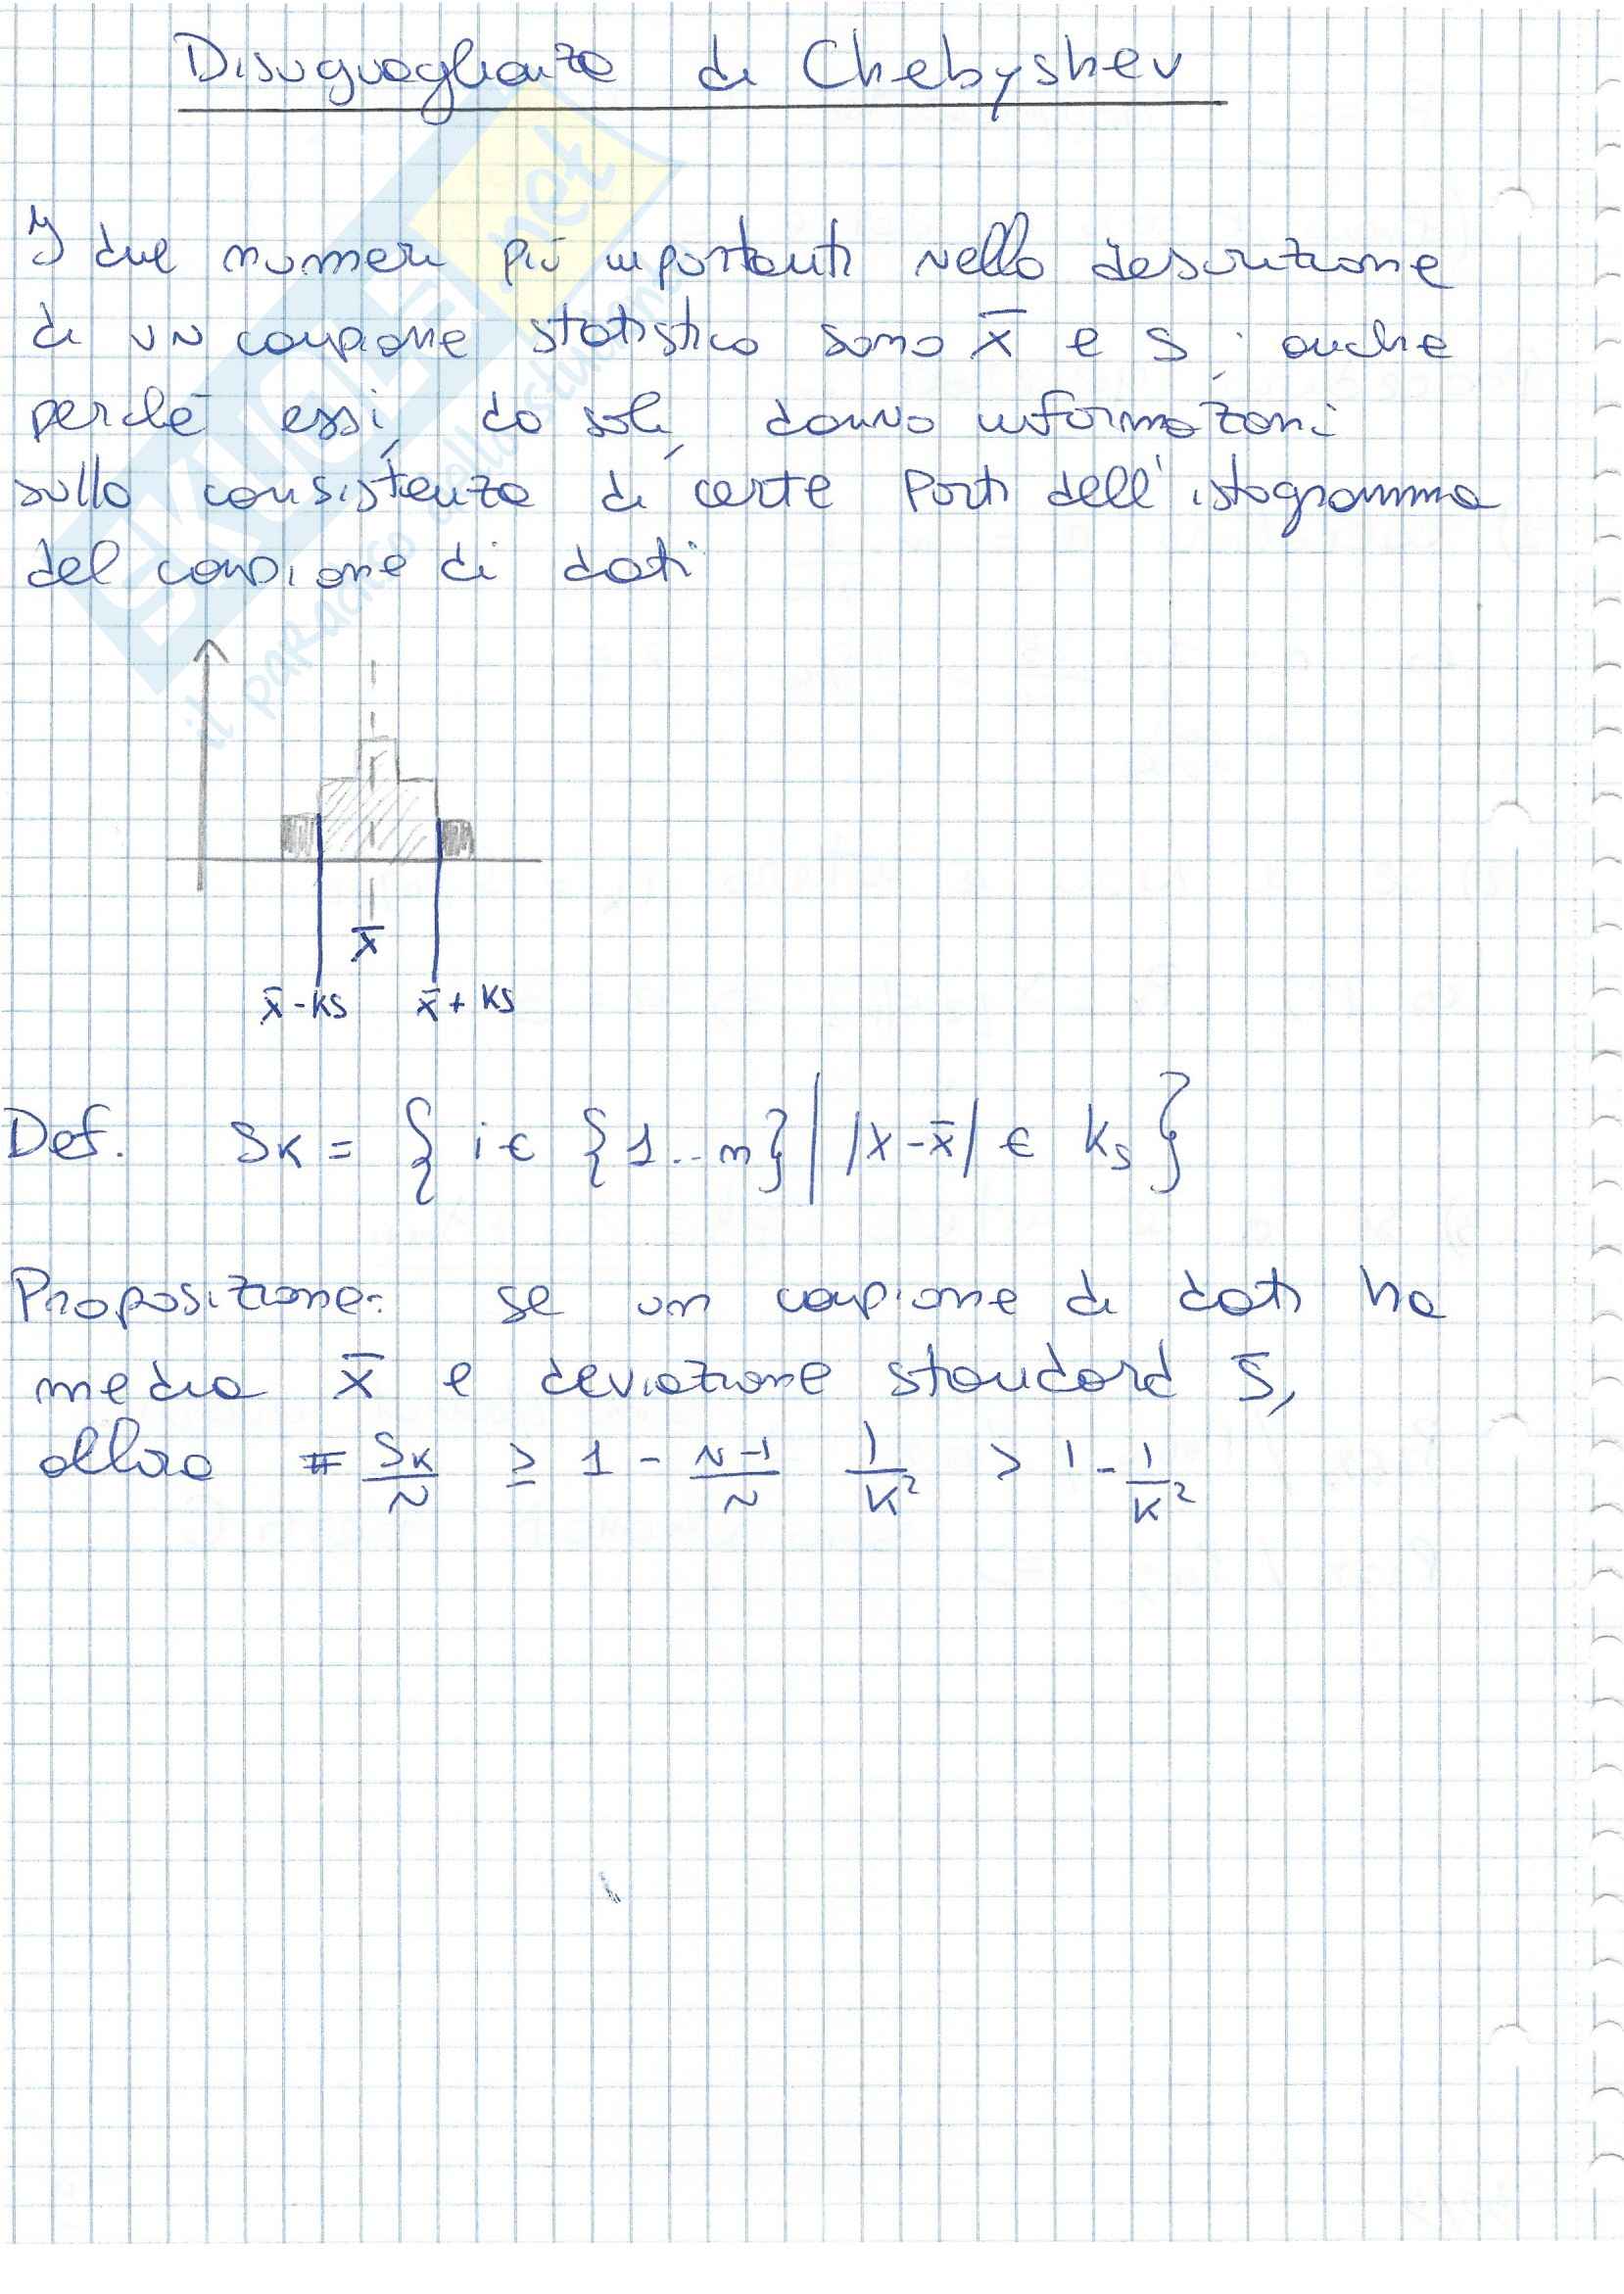 Disuguaglianza di Chebyshev
I due numeri più importanti nella descrizione
di un campione statistico sono x̄ e s, anche
perché essi, da soli, danno informazioni
sulla consistenza di certe parti dell'istogramma
del campione di dati
x̄
x̄-ks x̄+ks
Def. Sk = { i ∈ {1..n} | |x-x̄| ∈ ks }
Proposizione: se un campione di dati ha
media x̄ e deviazione standard s,
allora # Sk/N ≥ 1 - N-1/N 1/K² > 1 - 1/K²
SKUOLA.net
il paradiso dello studente